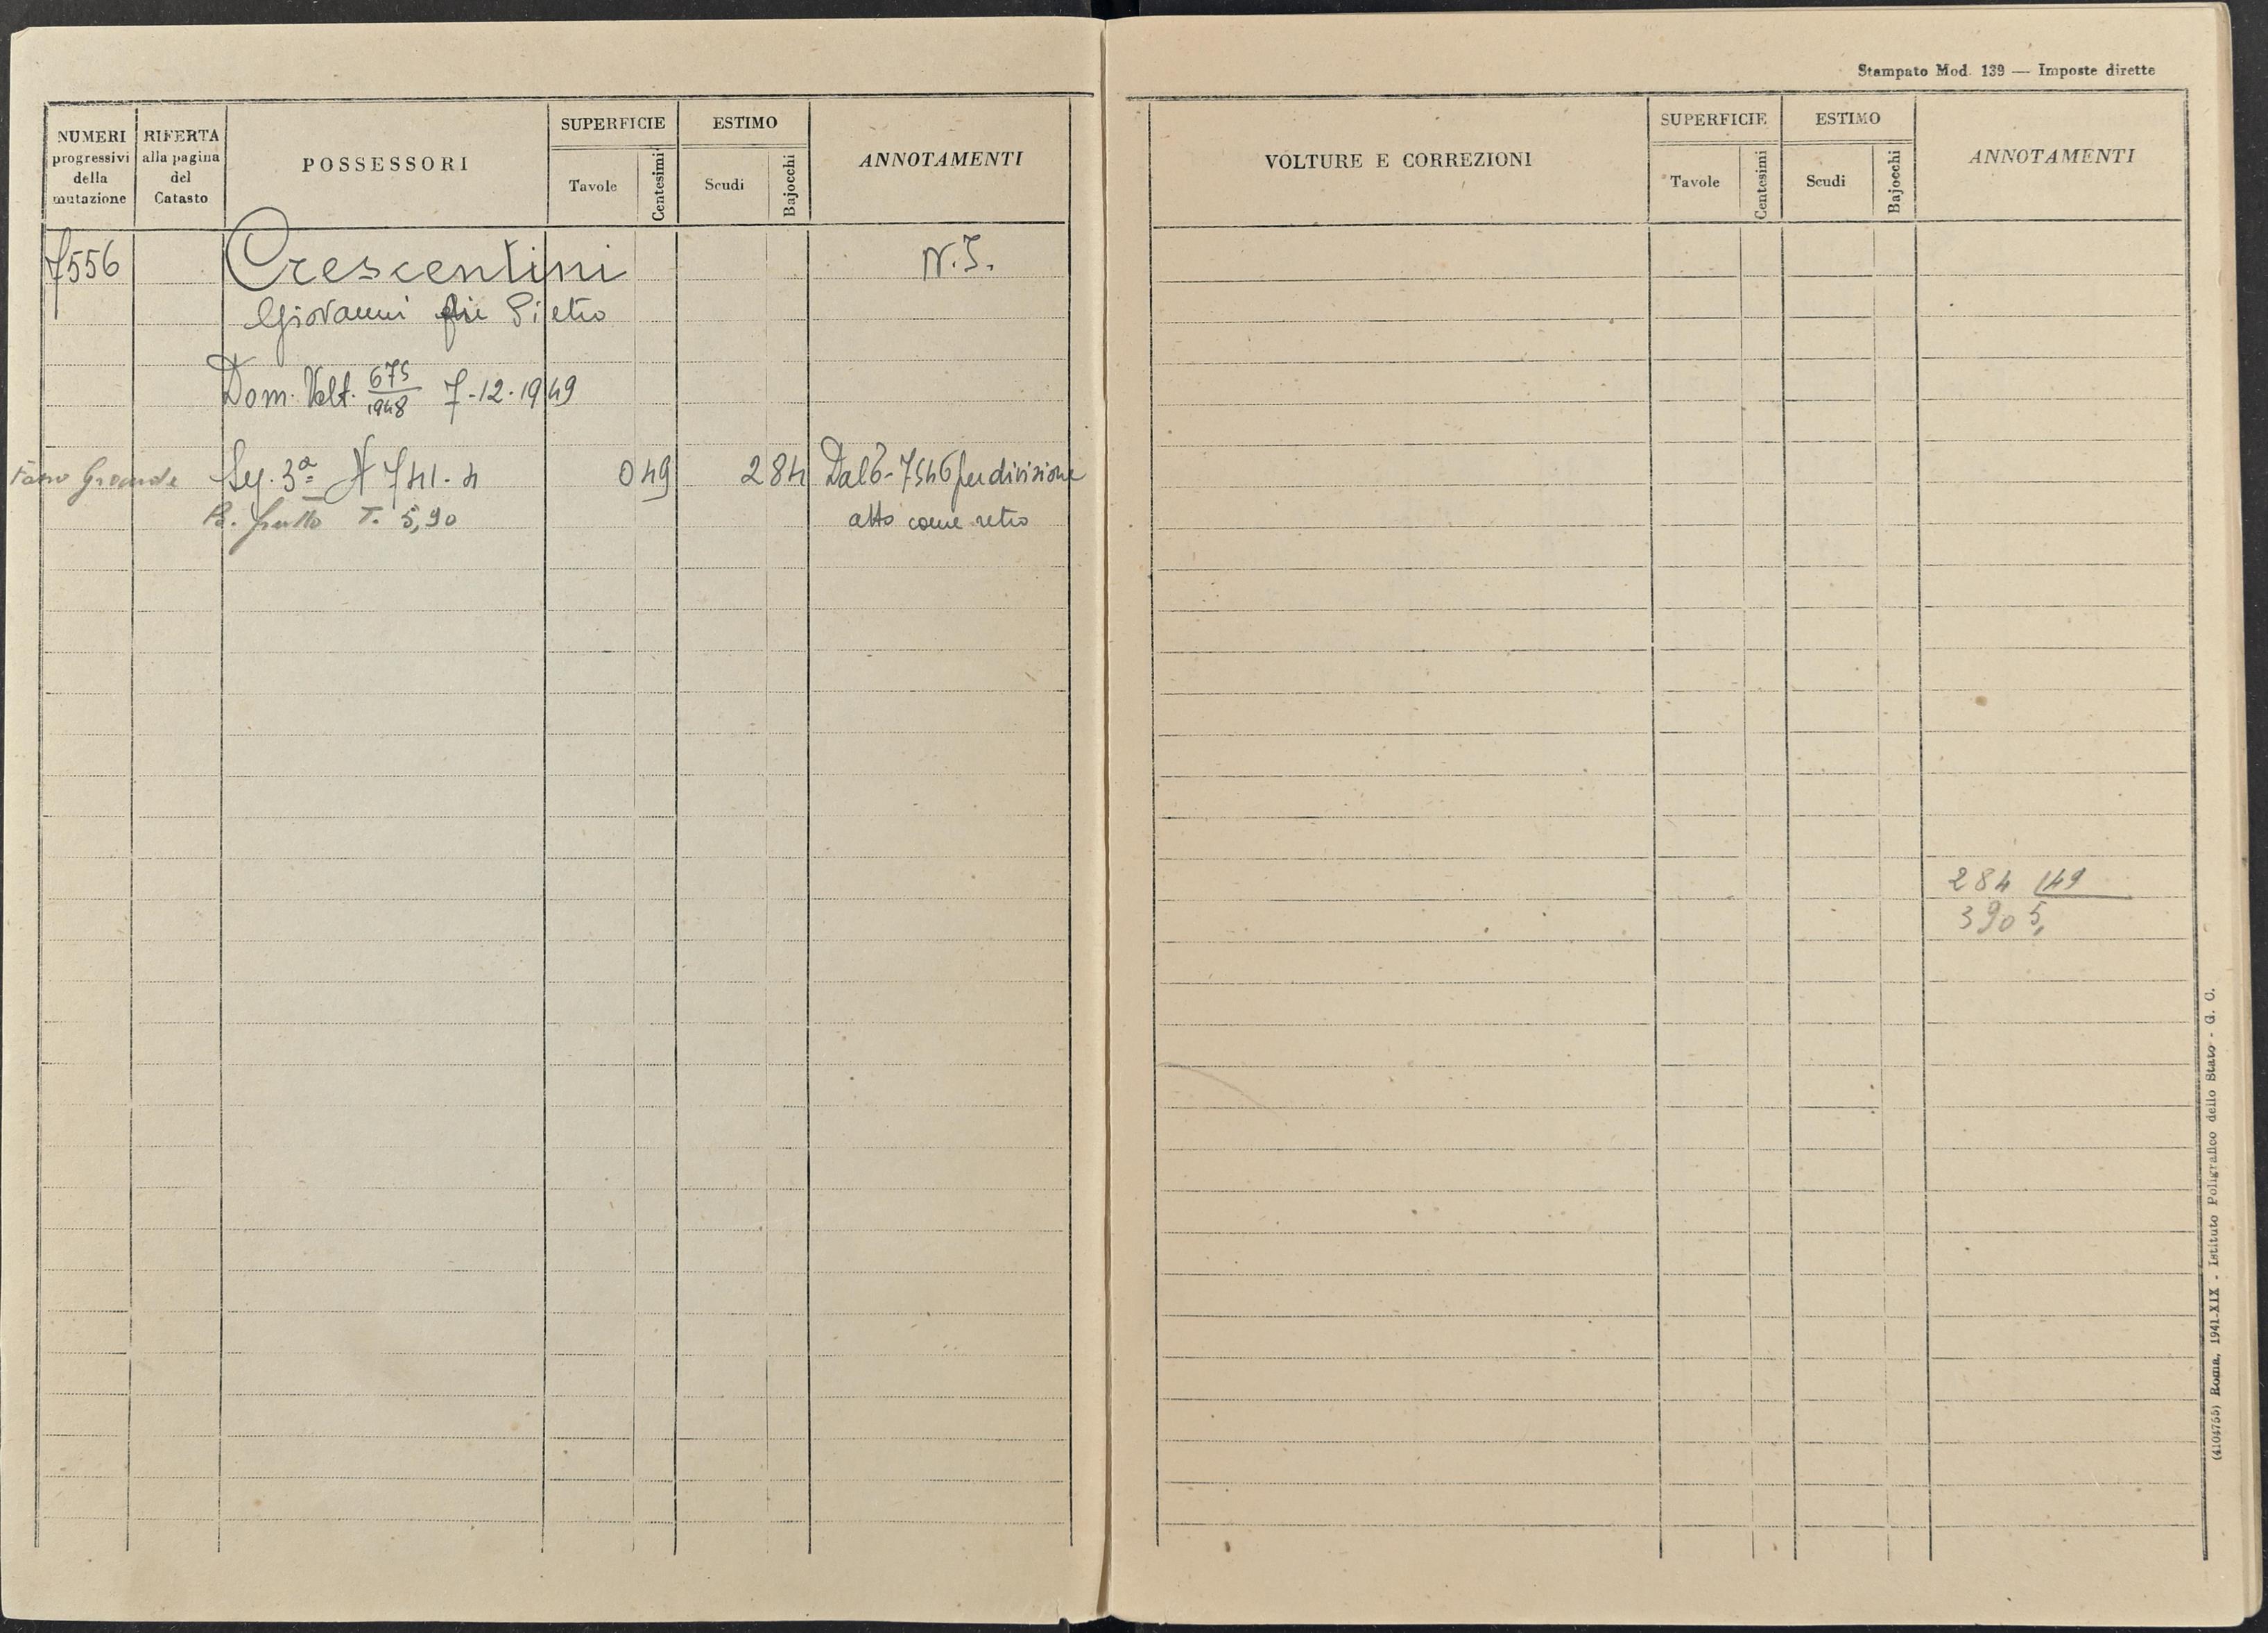 NUMERI progressivi della mutazione
RIFERTA alla pagina del Catasto
POSSESSORI
SUPERFICIE
Tavole
Centesimi
ESTIMO
Scudi
Bajocchi
ANNOTAMENTI
7556
Crescentini
N.I.
Giovanni fu Pietro
Dom. Volt. 675/1948 7-12-1949
Grande Sez. 3ª N 741.4 0 49 2 84 Dal 6-7546 per divisione
T. 5,90 atto come retro
Stampato Mod. 139 — Imposte dirette
VOLTURE E CORREZIONI
SUPERFICIE
Tavole
Centesimi
ESTIMO
Scudi
Bajocchi
ANNOTAMENTI
284 49
390 5,
(4104765) Roma, 1941-XIX - Istituto Poligrafico dello Stato - G. C.